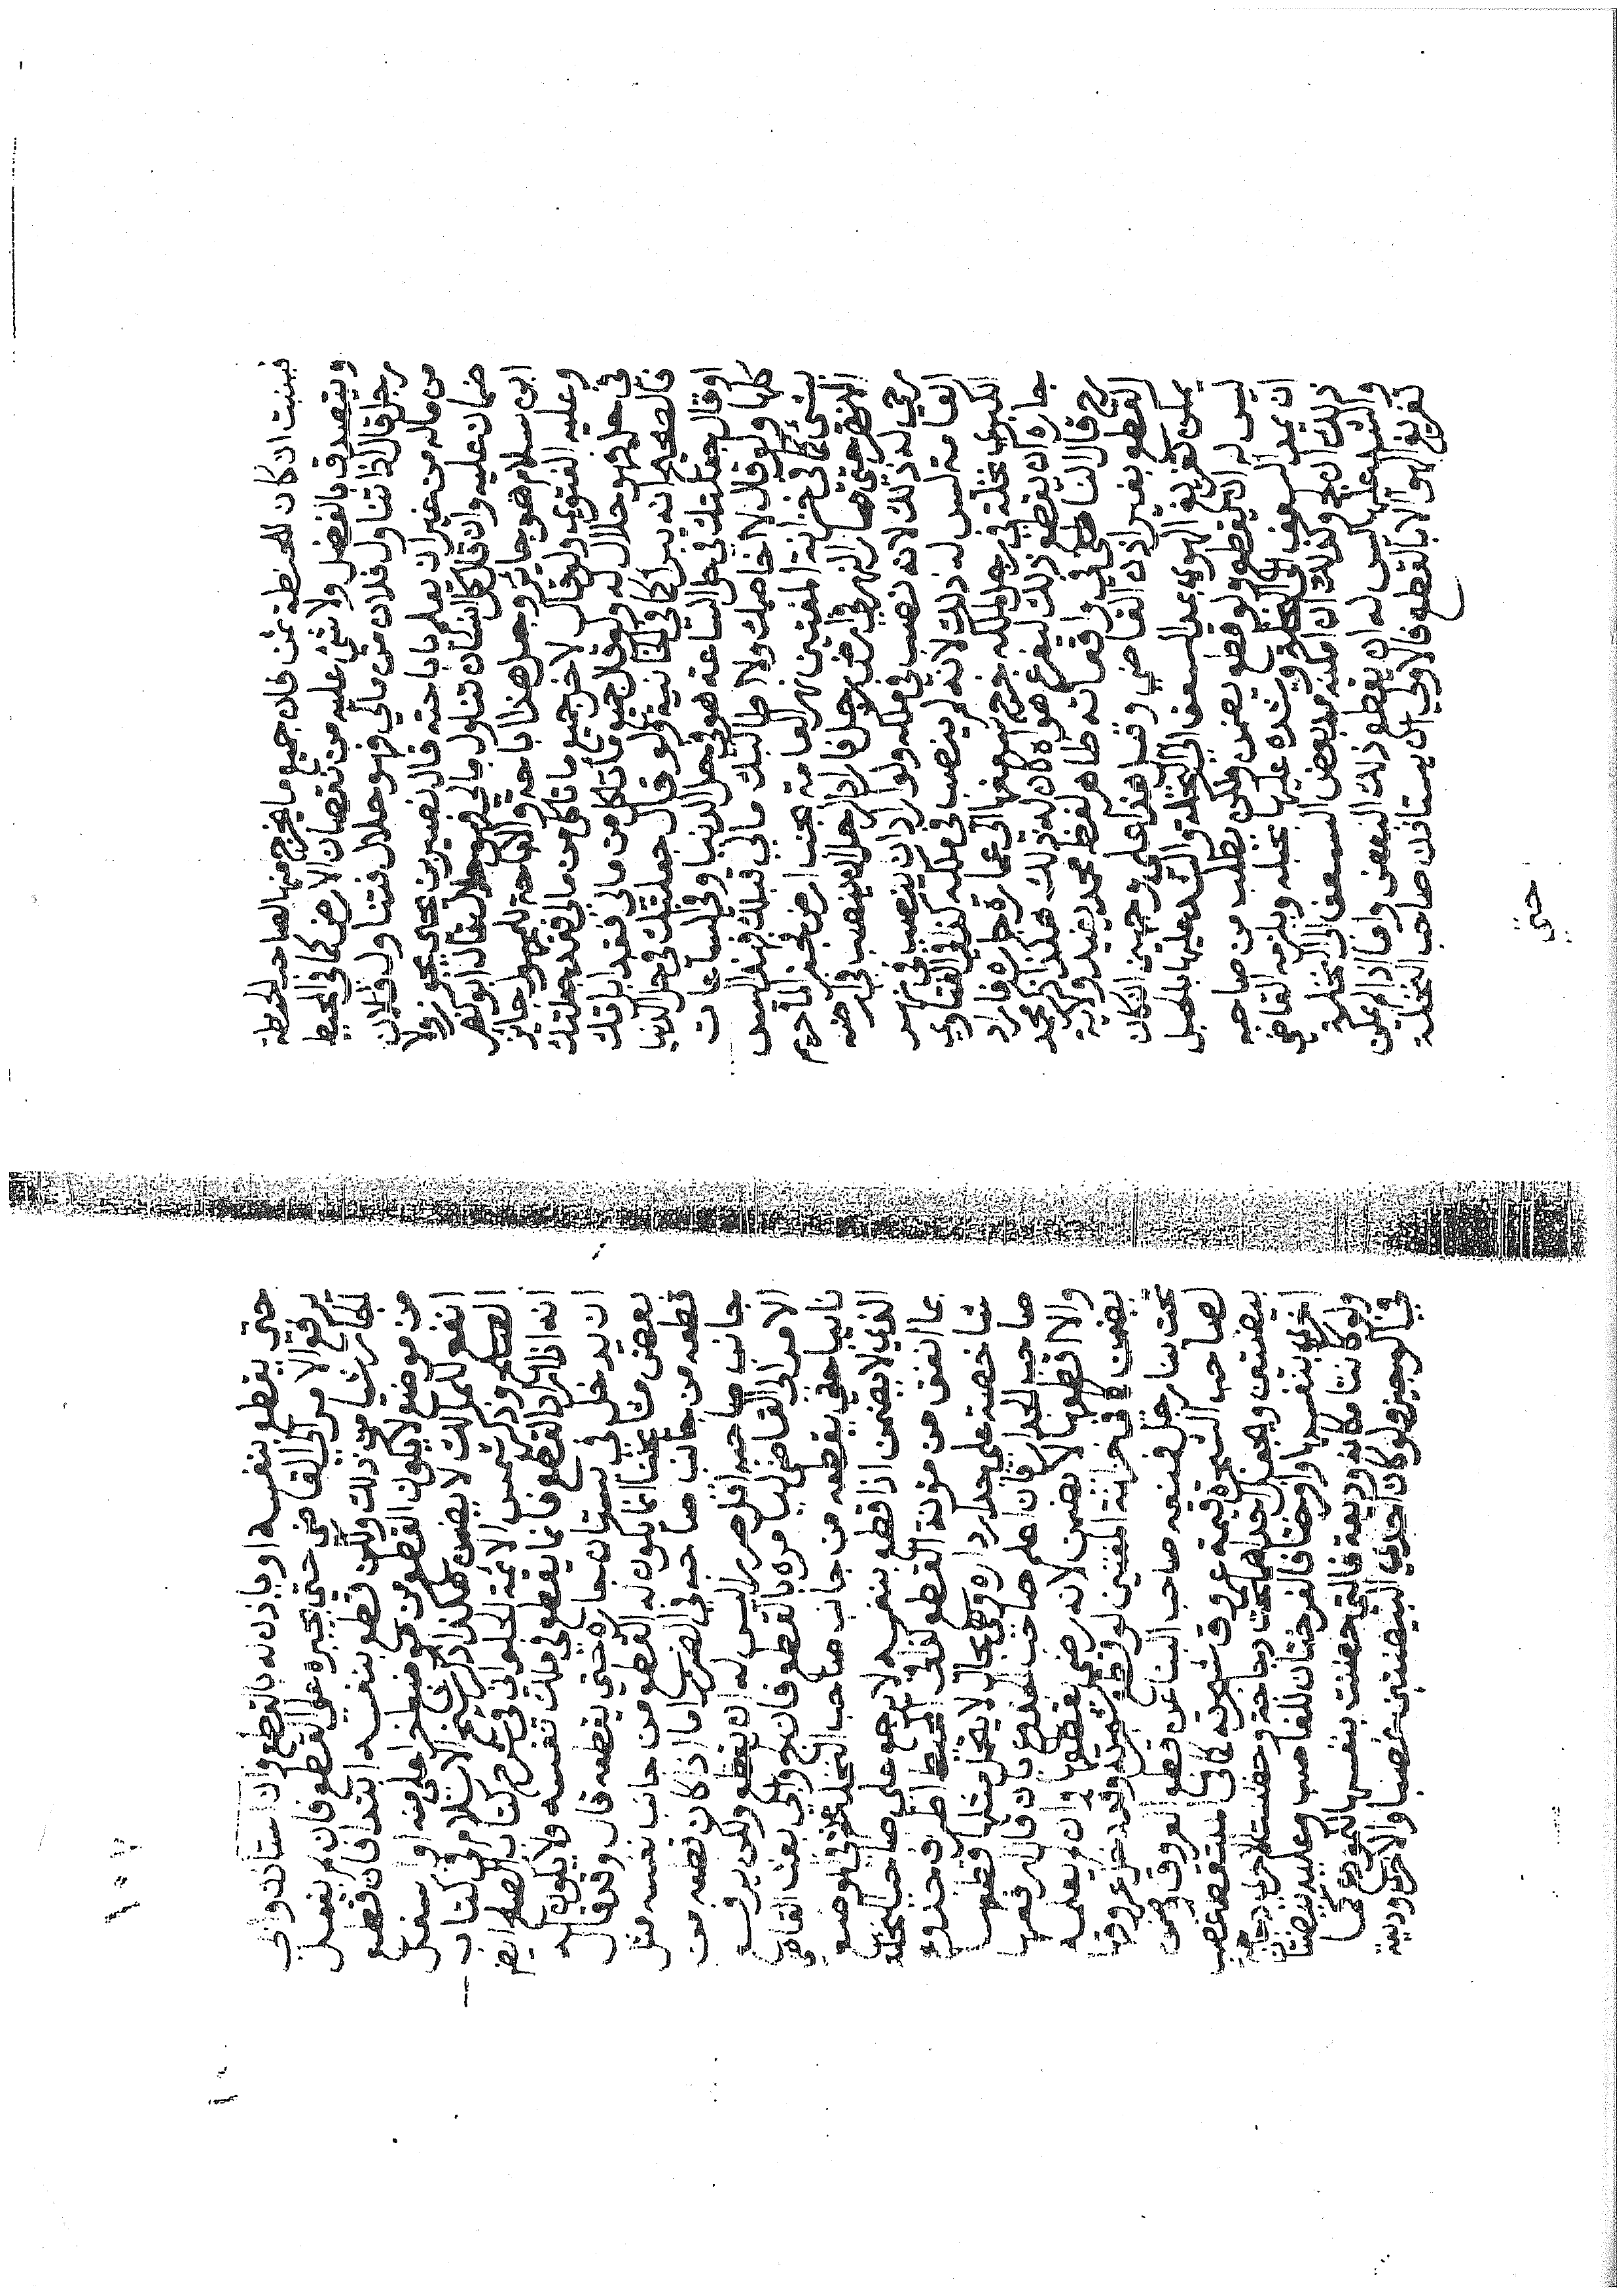 فبنبت ان كان للحنطة ثمن كان جميع ما يخرج منها لصاحب الحنطة
ويتصدق بالفضل ولا شيء عليه من نقصان الارض كما في المحيط
رجل قال اذا تناول فلان من مالي فهو حلال فتناول فلان
من ماله من غير ان يعلم باباحته قال نصير بن يحيى يجوز ولا
ضمان عليه وان قال كل انسان تناول مالي فهو حلال قال ابو نصر
ابن سلام هو جائز وجعل هذا اباحة والاباحة للمجهول جائز
وعليه الفتوى ولو قال لاخر جميع ما تاكل من مالي فقد جعلتك
في حل فهو حلال له ولو قال جميع ما تاكل من مالي فقد ابراتك
فالصحيح انه يبرا كما في الخانية ولو قال جعلتك في حل الدنيا
او قال جعلتك في حل الساعة هو في حل الدنيا وفي الساعات
كلها ولو قال لا اخاصمك ولا اطالبك مالي قبلك فهذا ليس
بشيء كما في خزانة المفتين نهر العامة بجنب ارض فحفر الماء حريم
النهر حتى صار النهر في ارض رجل فاراد الرجل ان ينصب في ارضه
رحى له ذلك لانه نصب في ملكه ولو اراد ان ينصب في نهر
العامة ليس له ذلك لانه لم ينصب في ملكه كذا في الفتاوى
الكبرى نخلة في رجل ملكه خرج سعفها الى عمارة جاره فاراد
جاره ان يقطع ذلك ليفرغ هواه كان له ذلك هكذا ذكر محمد
رح قال الناطفي في واقعاته ظاهر لفظ محمد يفيد ولاية
القطع بغير اذن القاضي وقيل هذا على وجهين ان كان
يمكن تفريغ الهوى بمد السعف الى النخلة والشد عليها بالحبل
ليس له ان يقطع ولو قطع يضمن ولكن يطلب من صاحبه
ان يمد السعف الى النخلة ويشده عليها بحبل ويلزمه القاضي
ذلك ان لج وكذلك ان امكنه مد بعض السعف الى النخلة
والشد عليها ليس له ان يقطع ذلك البعض واما اذا لم يمكن
تفريغ الهوى الا بالقطع فالاولى ان يستاذن صاحب النخلة
حتى
حتى يقطع بنفسه او ياذن له بالقطع وان استاذن وابى
يرفع الامر الى القاضي حتى يجبره على القطع فان لم يفعل
الجار شيئا من ذلك ولكن قطع بنفسه ابتداء فان قطع
من موضع لا يكون القطع من موضع اخر اعلى منه او اسفل
انفع للمالك لا يضمن هكذا ذكر شيخ الاسلام في كتاب
الصلح وذكر شمس الائمة الحلواني في شرح كتاب الصلح ايضا
انه اذا اراد القطع فانما يقطع في ملك نفسه ولا يكون له
ان يدخل في بستان جاره حتى يقطعه قال وقد قال
بعض مشايخنا انما يكون له القطع من جانب نفسه مثل
قطعه من جانب صاحبه في الضرر اما اذا كان قطعه من
جانب صاحبه اقل ضررا ليس له ان يقطع ولكن يرفع
الامر الى القاضي ليامره بالقطع فان لج وابى بعث القاضي
نائبا حتى يقطعه من جانب صاحب النخلة ثم في الموضع
الذي لا يضمن اذا قطع بنفسه لا يرجع على صاحب النخلة
بما انفق من مؤنة القطع كذا في المحيط اطرف جذوع
شاخصة على جدار داره وهي بحال لا يحمل مثلها فقطعها
صاحب الجدار فان اعلم صاحب الجذوع بان قال ارفعها
والا اقطعها لا يضمن لانه رضي بقطعها وان لم يعلمه
يضمن في خزانة المفتين لو قطع شجرته وقد خرج عروقها
تحت بناء رجل فمنعه صاحب البناء عن قطع العروق ضمن
لصاحب الشجرة قيمة عروق شجرته كما في
بيضتين وجعل احداهما تحت دجاجة وحضنت الاخرى
اخرى بنفسها وافرختا فالفرختان للغاصب وعليه بيضتان
ولو كانتا مكانه وديعة فالتي حضنت بنفسها لمودعها كما
في الوجيز ولو كان احدى البيضتين غصبا والاخرى وديعة